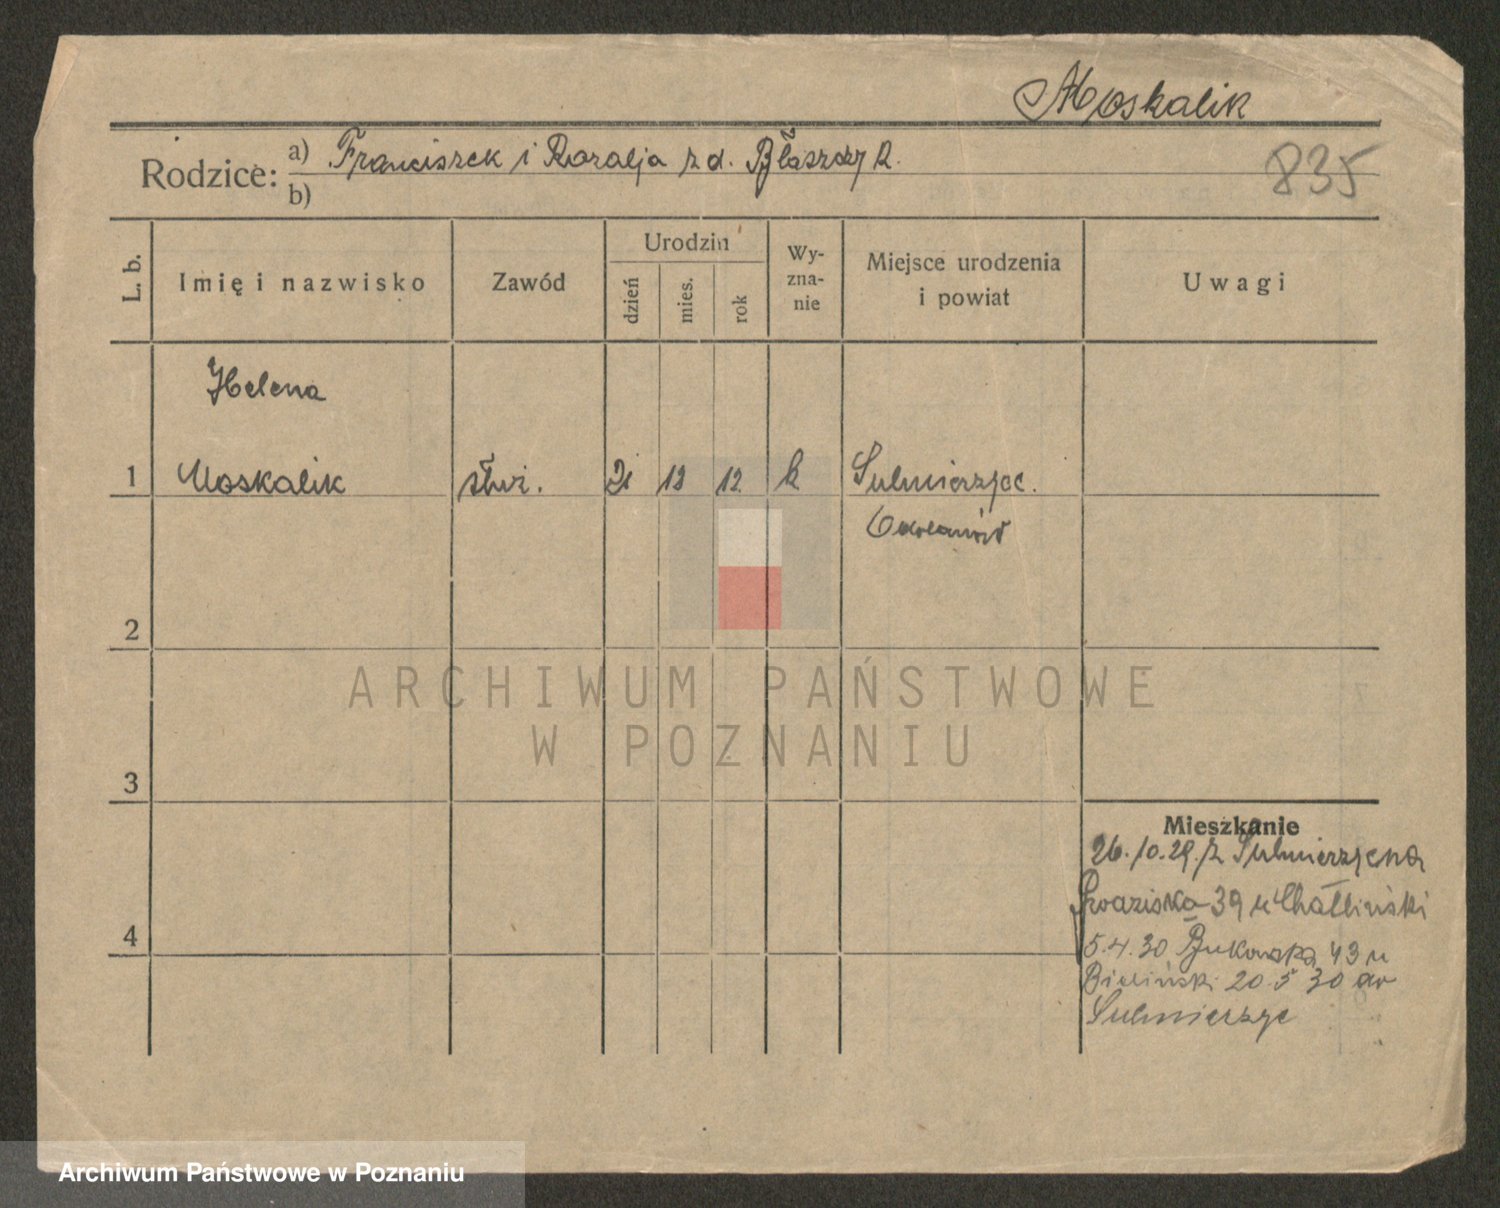 Moskalik
Rodzice: a) Franciszek i Rozalja z d. Błaszczyk
b)
835
L. b.
Imię i nazwisko
Zawód
Urodzin
dzień
mies.
rok
Wy-
zna-
nie
Miejsce urodzenia
i powiat
Uwagi
Helena
1 Moskalik służ. 12 12 k Sulmierzyce.
Odolanów
2
ARCHIWUM PAŃSTWOWE
W POZNANIU
3
Mieszkanie
26.10.29. z Sulmierzyc na
39 u
4
5.4.30 Bukowska 43 u
Bieliński 20.5 30 do
Sulmierzyc
Archiwum Państwowe w Poznaniu